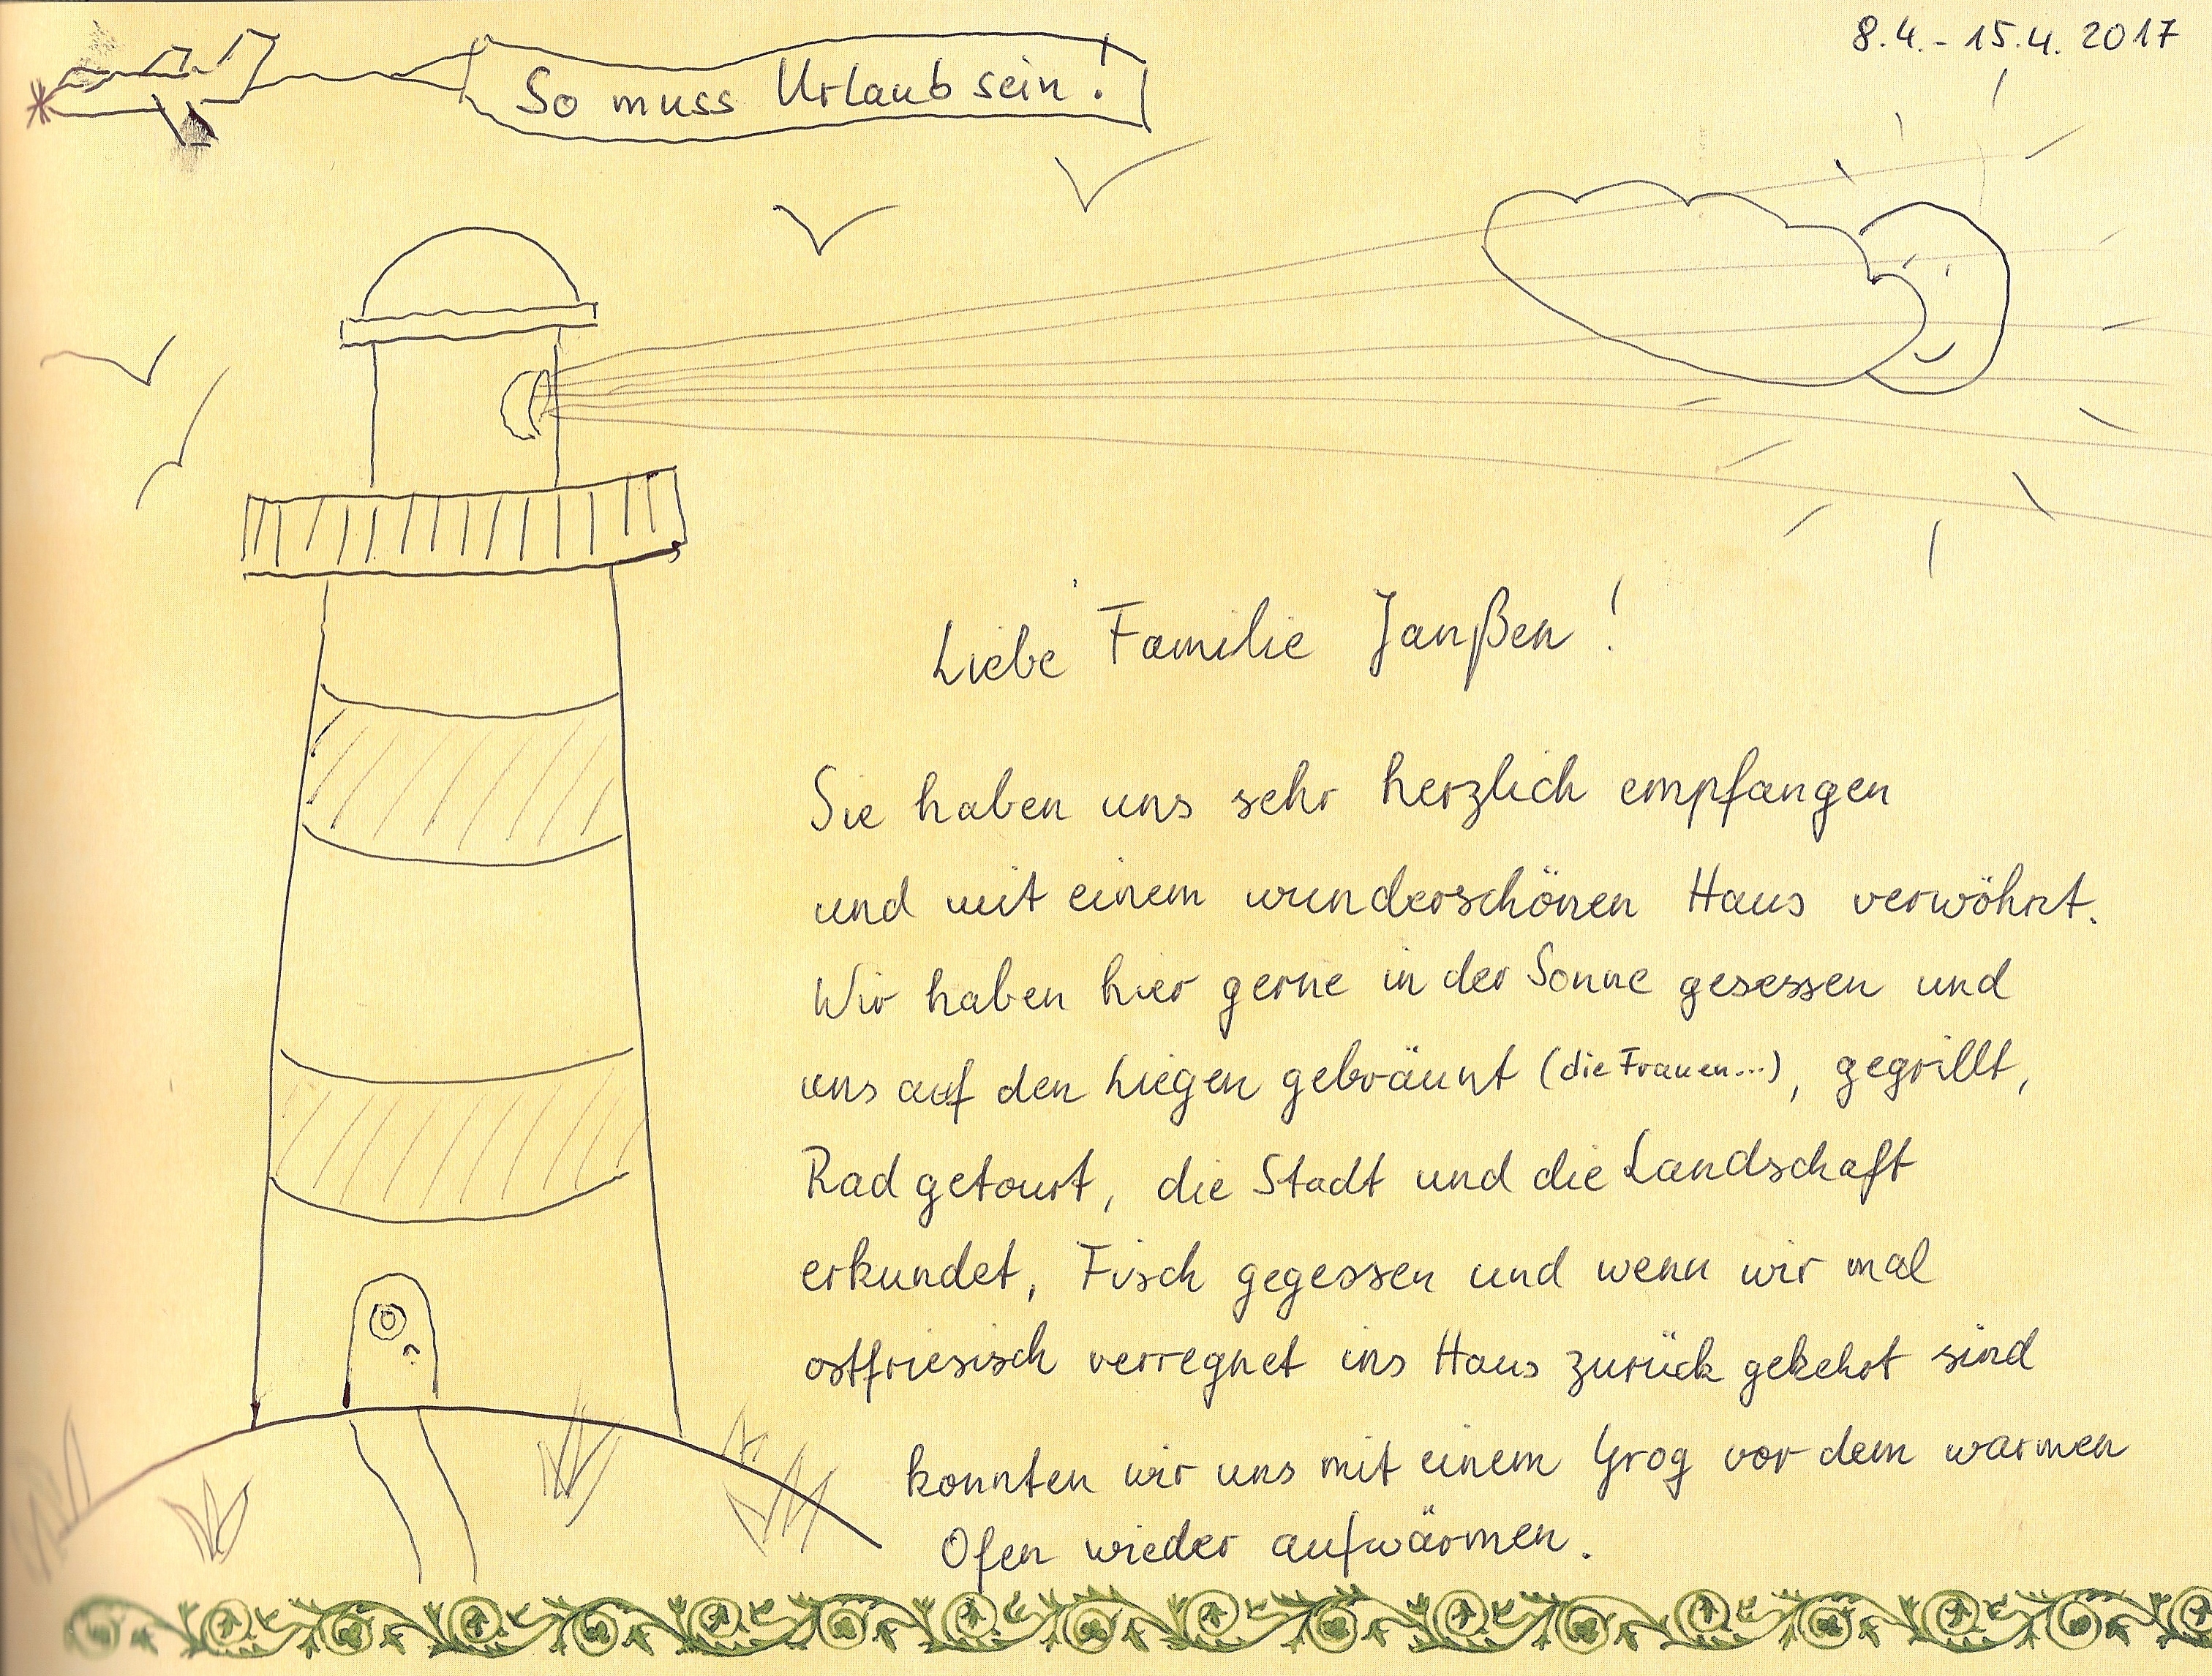 8.4. - 15.4. 2017
So muss Urlaub sein!
Liebe Familie Janßen!
Sie haben uns sehr herzlich empfangen
und mit einem wunderschönen Haus verwöhnt.
Wir haben hier gerne in der Sonne gesessen und
uns auf den Liegen gebräunt (die Frauen...), gegrillt,
Rad getourt, die Stadt und die Landschaft
erkundet, Fisch gegessen und wenn wir mal
ostfriesisch verregnet ins Haus zurück gekehrt sind
konnten wir uns mit einem Grog vor dem warmen
Ofen wieder aufwärmen.